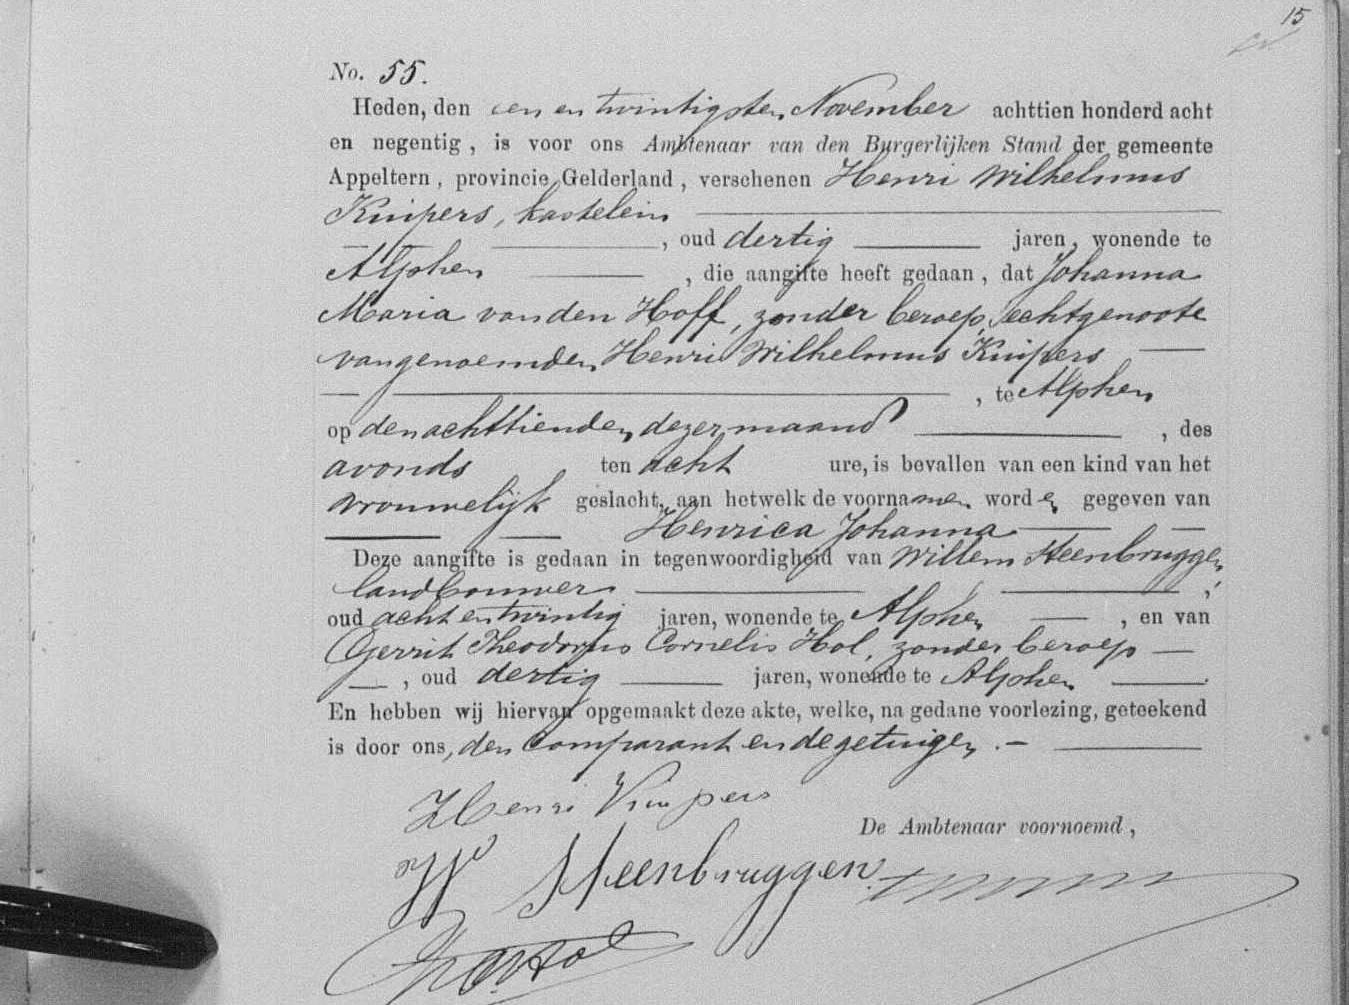 15
No. 55.
Heden, den een en twintigsten November achttien honderd acht
en negentig, is voor ons Ambtenaar van den Burgerlijken Stand der gemeente
Appeltern, provincie Gelderland, verschenen Henri Wilhelmus
Kuipers, kastelein
, oud dertig jaren, wonende te
Alphen , die aangifte heeft gedaan, dat Johanna
Maria van den Hoff, zonder beroep, echtgenoote
van genoemden Henri Wilhelmus Kuipers
, te Alphen
op den achttienden dezer maand , des
avonds ten acht ure, is bevallen van een kind van het
vrouwelijk geslacht, aan hetwelk de voornamen worden gegeven van
Henrica Johanna
Deze aangifte is gedaan in tegenwoordigheid van Willem Steenbruggen,
landbouwer ,
oud acht en twintig jaren, wonende te Alphen , en van
Gerrit Theodorus Cornelis Hol, zonder beroep
, oud dertig jaren, wonende te Alphen .
En hebben wij hiervan opgemaakt deze akte, welke, na gedane voorlezing, geteekend
is door ons, den comparant en de getuigen. –
Henri Kuipers
De Ambtenaar voornoemd,
W Steenbruggen